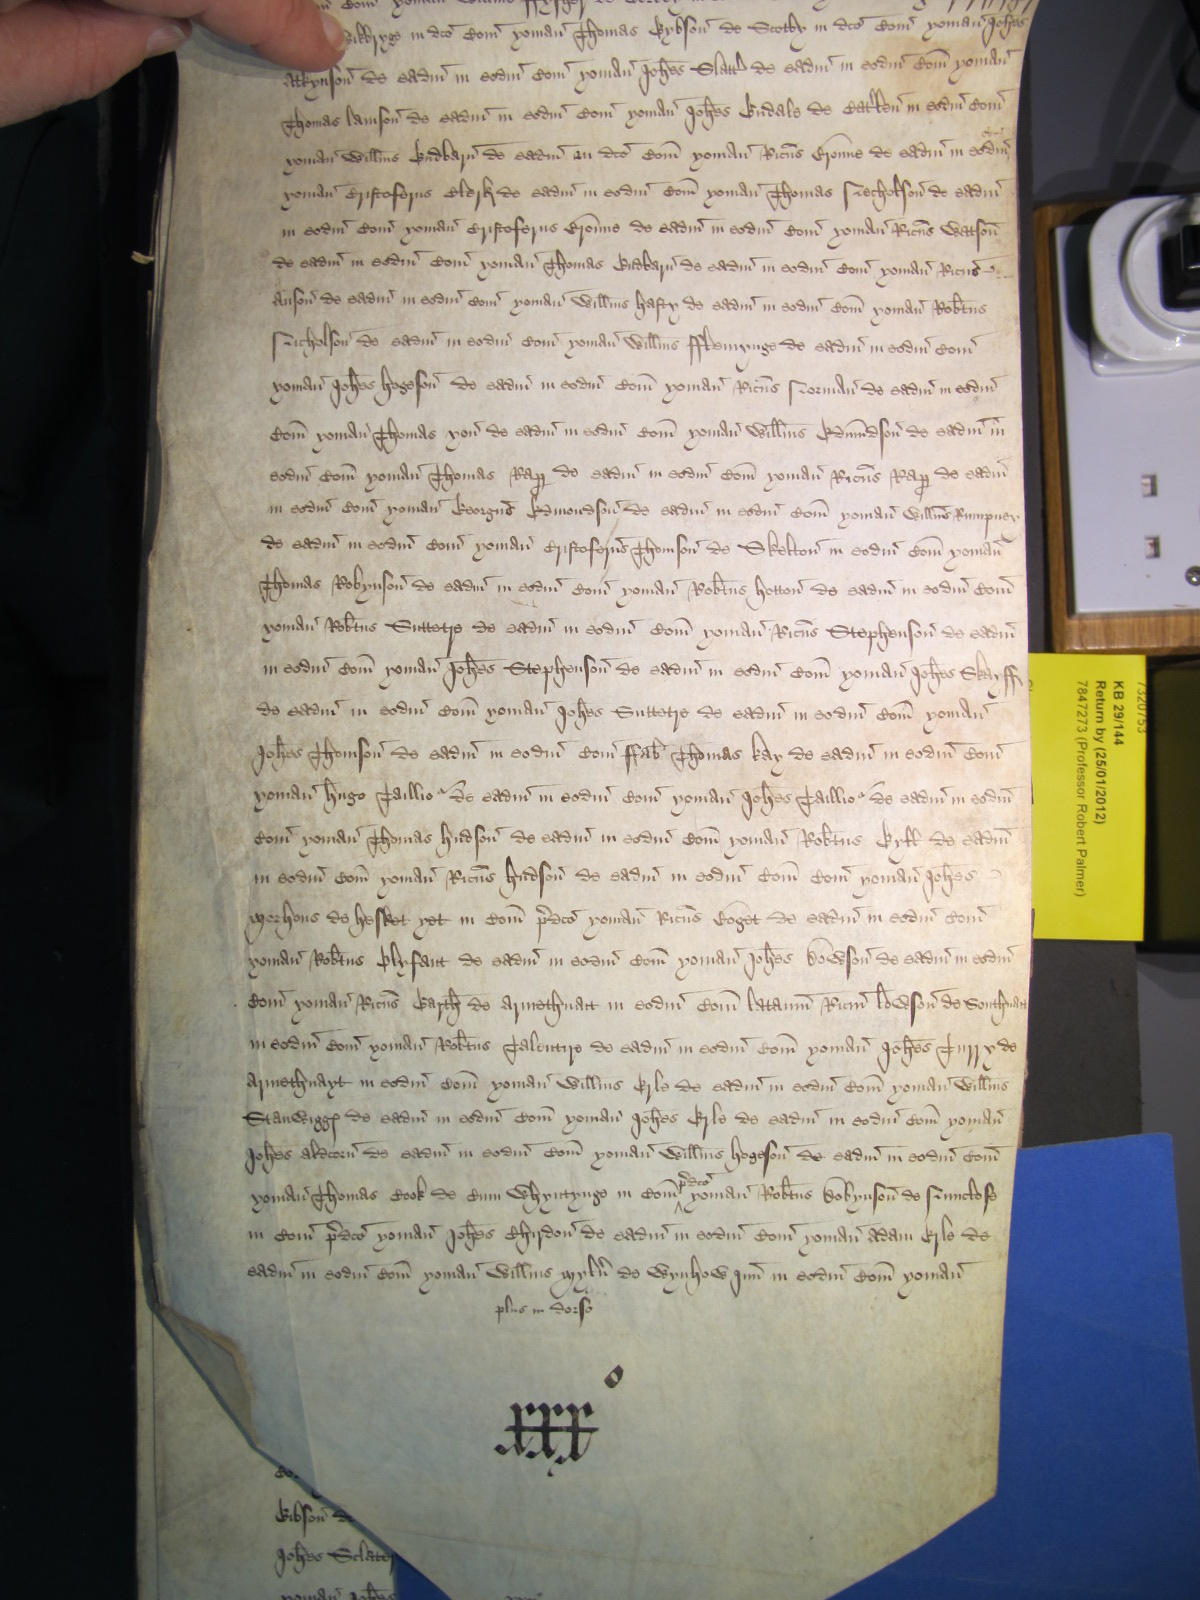 in dco Com yoman Thomas Gybson de Scotby in dco Com yoman Johes
Atkynson de eadm in eodm Com yoman Johes Slatt de eadm in eodm Com yoman
Thomas lamson de eadm in eodm Com yoman Johes Gndale de in eodm Com
yoman Willms de eadm in dco Com yoman Ricus de eadm in eodm
yoman Cristoferus Clerk de eadm in eodm Com yoman Thomas Necholson de eadm
in eodm Com yoman Cristoferus de eadm in eodm Com yoman Ricus Watson
de eadm in eodm Com yoman Thomas de eadm in eodm Com yoman Ricus
anson de eadm in eodm Com yoman Willms hasty de eadm in eodm Com yoman Robtus
Nicholson de eadm in eodm Com yoman Willms fflemynge de eadm in eodm Com
yoman Johes hogeson de eadm in eodm Com yoman Ricus Norman de eadm in eodm
Com yoman Thomas yon de eadm in eodm Com yoman Willms Edmundson de eadm in
eodm Com yoman Thomas Rapp de eadm in eodm Com yoman Ricus Rapp de eadm
in eodm Com yoman Georgus Edmondson de eadm in eodm Com yoman Willms Rumpney
de eadm in eodm Com yoman Cristoferus Thomson de Skelton in eodm Com yoman
Thomas Robynson de eadm in eodm Com yoman Robtus hetton de eadm in eodm Com
yoman Robtus Suttere de eadm in eodm Com yoman Ricus Stephenson de eadm
in eodm Com yoman Johes Stephenson de eadm in eodm Com yoman Johes Skayff
de eadm in eodm Com yoman Johes Suttere de eadm in eodm Com yoman
Johes Thomson de eadm in eodm Com ffab Thomas kay de eadm in eodm Com
yoman hugo Taillio de eadm in eodm Com yoman Johes Taillio de eadm in eodm
Com yoman Thomas hudson de eadm in eodm Com yoman Robtus Gyll de eadm
in eodm Com yoman Ricus hudson de eadm in eodm Com Com yoman Johes
Morhous de hesket yet in Com pdco yoman Ricus Coget de eadm in eodm Com
yoman Robtus Elyfant de eadm in eodm Com yoman Johes Bowson de eadm in eodm
Com yoman Ricus Garth de Armethuatt in eodm Com latamm Ricm lowson de Southuatt
in eodm Com yoman Robtus Talentire de eadm in eodm Com yoman Johes Turry de
Armethuayt in eodm Com yoman Willms Erle de eadm in eodm Com yoman Willms
Stanwiggs de eadm in eodm Com yoman Johes Erle de eadm in eodm Com yoman
Johes aldcorn de eadm in eodm Com yoman Willms hogeson de eadm in eodm Com
yoman Thomas Cook de Cum Whyntynge in Com pdco yoman Robtus Bobynson de Nunclose
in Com pdco yoman Johes Chirdon de eadm in eodm Com yoman Adam Erle de
eadm in eodm Com yoman Willms myln de Wynhow Jun in eodm Com yoman
plus in dorso
xxx o
Gibson de
Johes Sclater
yoman Johes
7320753
KB 29/144
Return by (25/01/2012)
7847273 (Professor Robert Palmer)